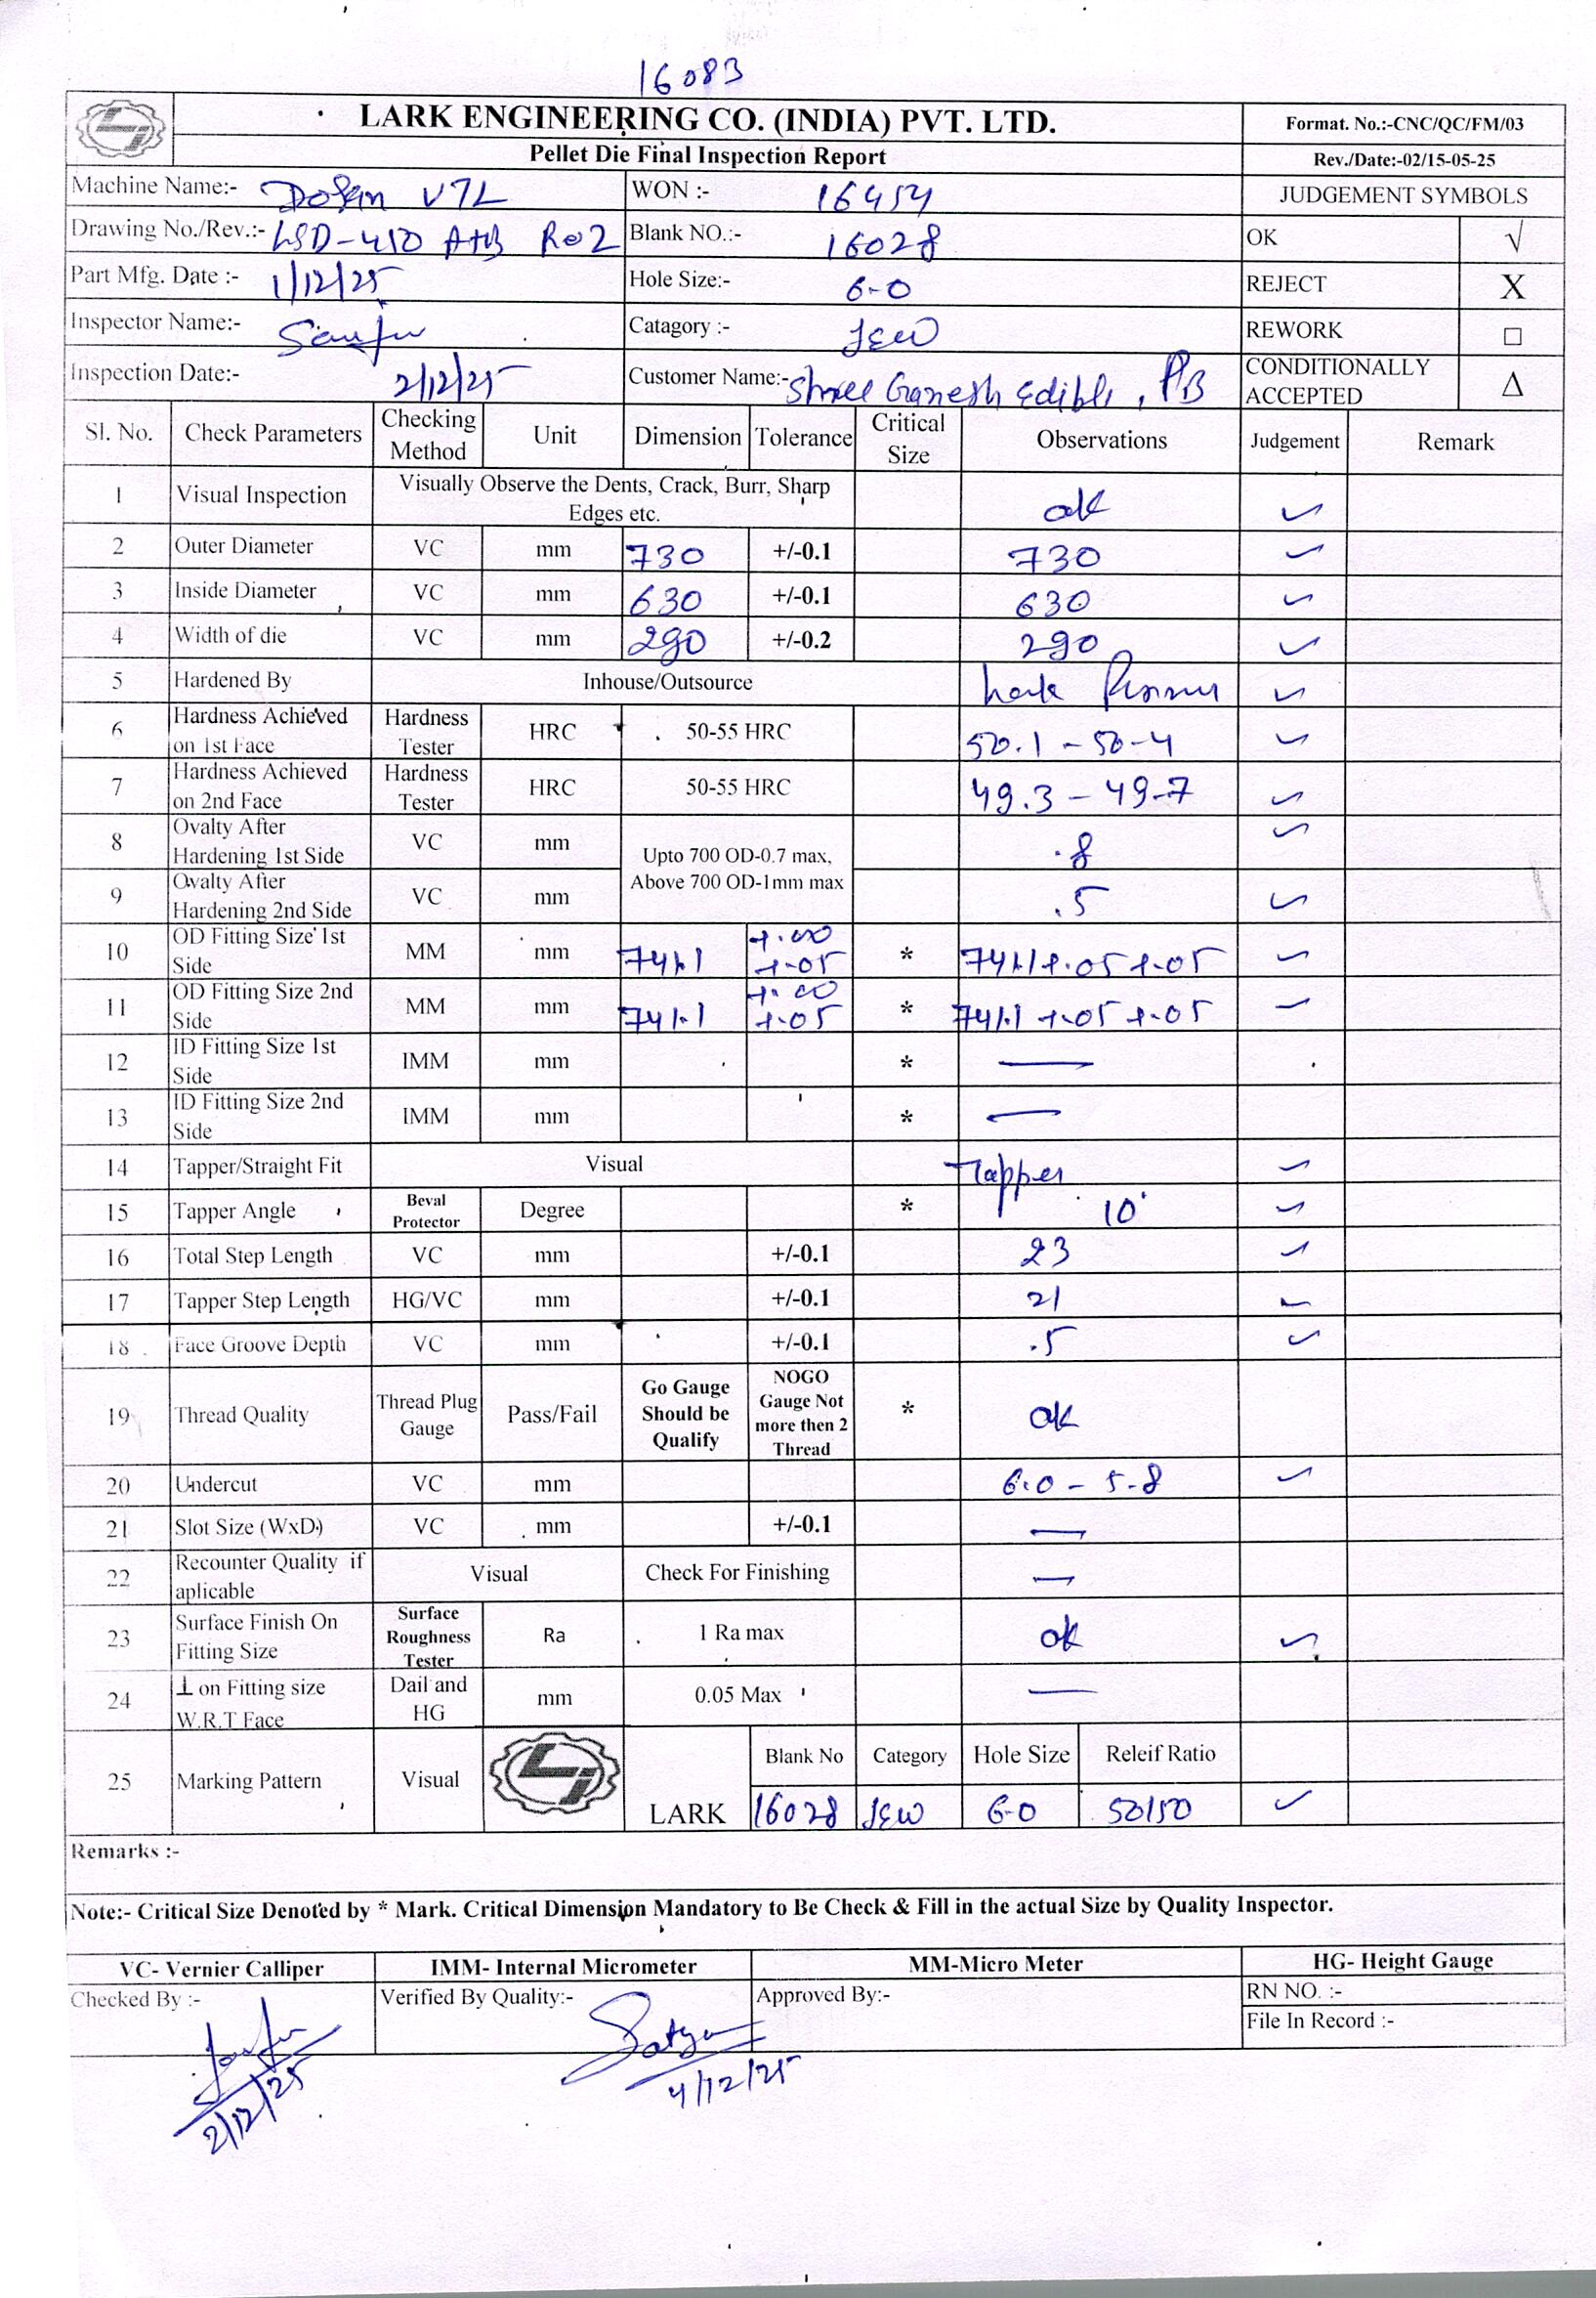 16083
LARK ENGINEERING CO. (INDIA) PVT. LTD.
Format. No.:-CNC/QC/FM/03
Pellet Die Final Inspection Report
Rev./Date:-02/15-05-25
Machine Name:- V7L WON :- 16454 JUDGEMENT SYMBOLS
Drawing No./Rev.:- LSD-450 A+B R02 Blank NO.:- 16028 OK √
Part Mfg. Date :- 1/12/25 Hole Size:- 6-0 REJECT X
Inspector Name:- Catagory :- REWORK □
Inspection Date:- 2/12/25 Customer Name:- Shree Ganesh Edible, PB CONDITIONALLY ACCEPTED Δ
Sl. No. Check Parameters Checking Method Unit Dimension Tolerance Critical Size Observations Judgement Remark
1 Visual Inspection Visually Observe the Dents, Crack, Burr, Sharp Edges etc. ok ✓
2 Outer Diameter VC mm 730 +/-0.1 730 ✓
3 Inside Diameter VC mm 630 +/-0.1 630 ✓
4 Width of die VC mm 290 +/-0.2 290 ✓
5 Hardened By Inhouse/Outsource ✓
6 Hardness Achieved on 1st Face Hardness Tester HRC 50-55 HRC 50.1 - 50-4 ✓
7 Hardness Achieved on 2nd Face Hardness Tester HRC 50-55 HRC 49.3 - 49-7 ✓
8 Ovalty After Hardening 1st Side VC mm Upto 700 OD-0.7 max, Above 700 OD-1mm max .8 ✓
9 Ovalty After Hardening 2nd Side VC mm .5 ✓
10 OD Fitting Size 1st Side MM mm 741.1 +.00 +.05 * 741.1 +.05 +.05 ✓
11 OD Fitting Size 2nd Side MM mm 741.1 +.00 +.05 * 741.1 +.05 +.05 ✓
12 ID Fitting Size 1st Side IMM mm * —
13 ID Fitting Size 2nd Side IMM mm * —
14 Tapper/Straight Fit Visual Tapper ✓
15 Tapper Angle Beval Protector Degree * 10° ✓
16 Total Step Length VC mm +/-0.1 23 ✓
17 Tapper Step Length HG/VC mm +/-0.1 21 ✓
18 Face Groove Depth VC mm +/-0.1 .5 ✓
19 Thread Quality Thread Plug Gauge Pass/Fail Go Gauge Should be Qualify NOGO Gauge Not more then 2 Thread * ok
20 Undercut VC mm 6.0 - 5-8 ✓
21 Slot Size (WxD) VC mm +/-0.1 —
22 Recounter Quality if aplicable Visual Check For Finishing —
23 Surface Finish On Fitting Size Surface Roughness Tester Ra 1 Ra max ok ✓
24 ⊥ on Fitting size W.R.T Face Dail and HG mm 0.05 Max —
25 Marking Pattern Visual LARK Blank No Category Hole Size Releif Ratio
16028 6-0 50/50 ✓
Remarks :-
Note:- Critical Size Denoted by * Mark. Critical Dimension Mandatory to Be Check & Fill in the actual Size by Quality Inspector.
VC- Vernier Calliper IMM- Internal Micrometer MM-Micro Meter HG- Height Gauge
Checked By :- Verified By Quality:- Approved By:- RN NO. :-
File In Record :-
2/12/25 4/12/25